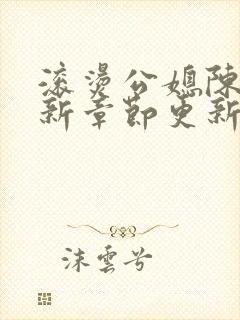 滚烫公媳陈
新章节更新
沫云兮